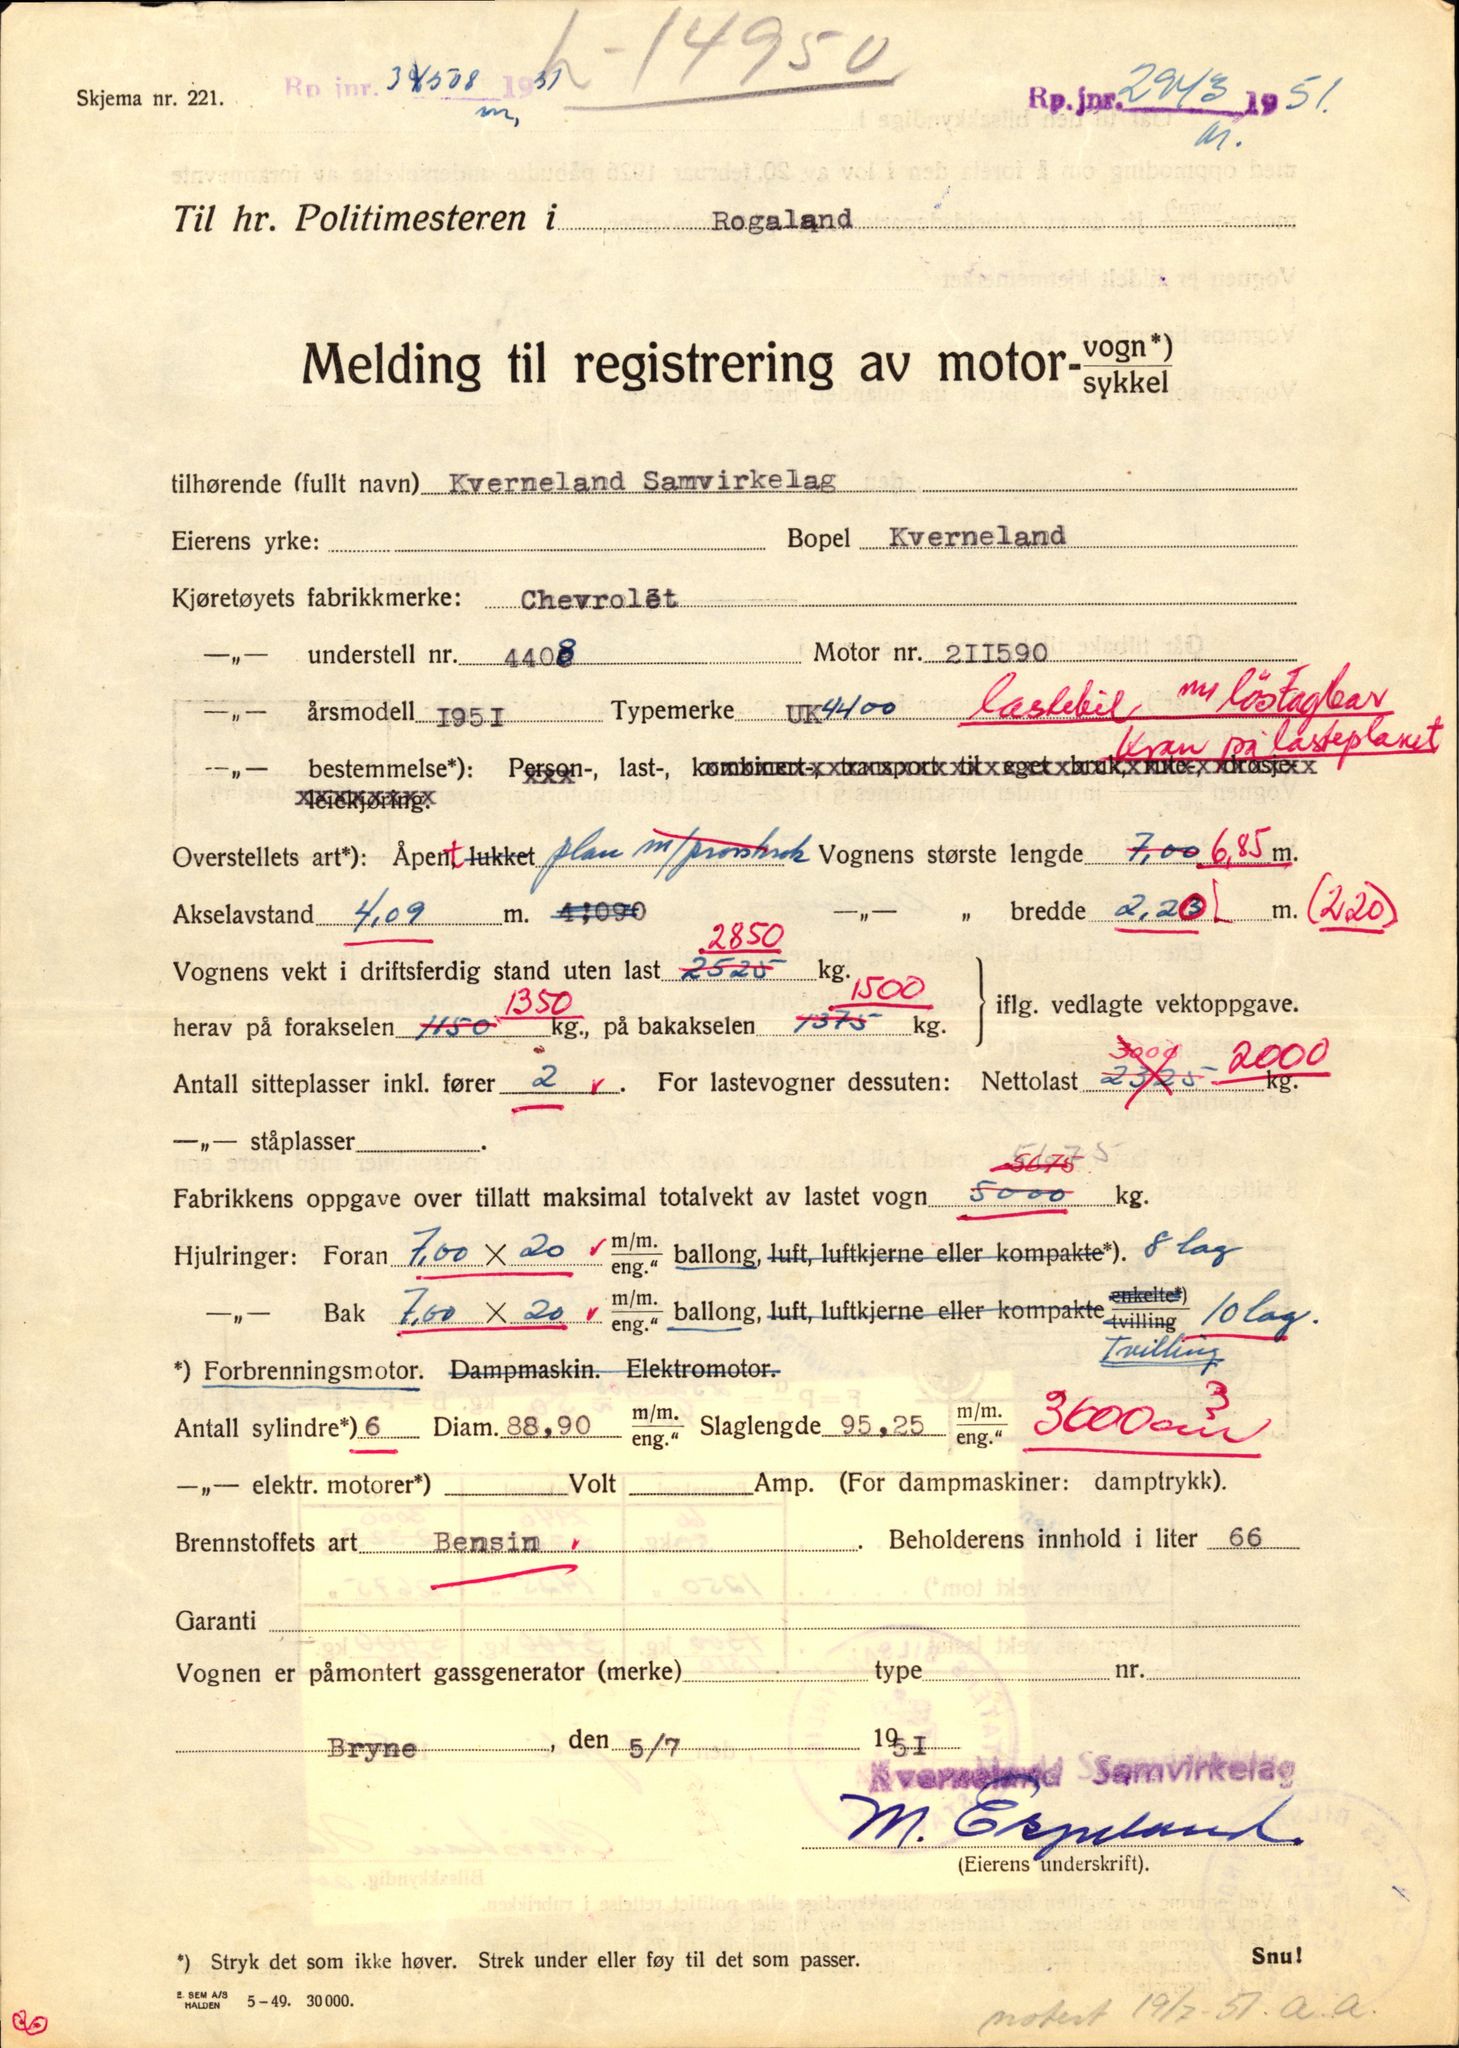 L-14950
Skjema nr. 221.
Rp. jnr. 1951
m.
Rp. jnr. 2943 1951.
m.
Til hr. Politimesteren i Rogaland
Melding til registrering av motor- vogn*)
sykkel
tilhørende (fullt navn) Kverneland Samvirkelag
Eierens yrke: Bopel Kverneland
Kjøretøyets fabrikkmerke: Chevrolet
—„— understell nr. 4408 Motor nr. 2II590
—„— årsmodell I95I Typemerke UK4400 lastebil m/ löstagbar
kran på lasteplanet
—„— bestemmelse*): Person-, last-, kombinert-, transport til eget bruk, rute-, drosje-
leiekjøring.
Overstellets art*): Åpent lukket plan m/ Vognens største lengde 7,00 6,85 m.
Akselavstand 4,09 m. 4,090 —„— „ bredde 2,20 m. (2,20)
2850
Vognens vekt i driftsferdig stand uten last 2525 kg.
1350 1500
herav på forakselen 1150 kg., på bakakselen 1375 kg. iflg. vedlagte vektoppgave.
3000 2000
Antall sitteplasser inkl. fører 2 . For lastevogner dessuten: Nettolast 2325 kg.
—„— ståplasser .
5675 5675
Fabrikkens oppgave over tillatt maksimal totalvekt av lastet vogn 5000 kg.
Hjulringer: Foran 7,00 × 20 m/m. eng.“ ballong, luft, luftkjerne eller kompakte*). 8 lag
—„— Bak 7,00 × 20 m/m. eng.“ ballong, luft, luftkjerne eller kompakte enkelte*) tvilling 10 lag.
Tvilling
*) Forbrenningsmotor. Dampmaskin. Elektromotor.
Antall sylindre*) 6 Diam. 88,90 m/m. eng.“ Slaglengde 95,25 m/m. eng.“ 3600 cm3
—„— elektr. motorer*) Volt Amp. (For dampmaskiner: damptrykk).
Brennstoffets art Bensin . Beholderens innhold i liter 66
Garanti
Vognen er påmontert gassgenerator (merke) type nr.
Bryne, den 5/7 195I
Kverneland Samvirkelag
M. Espeland.
(Eierens underskrift).
*) Stryk det som ikke høver. Strek under eller føy til det som passer. Snu!
E. SEM A/S
HALDEN 5-49. 30 000.
notert 19/7-51. a.a.